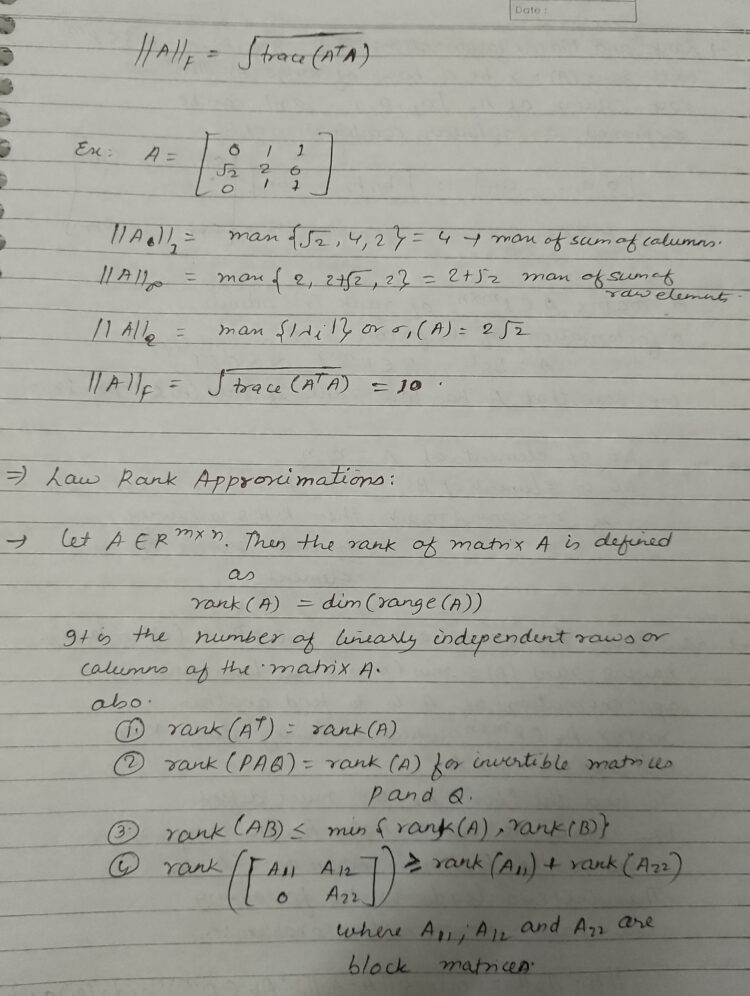 Date:
||A||_F = √trace(AᵀA)
Ex: A = [ 0 1 1
√2 2 0
0 1 1 ]
||A||₁ = max {√2, 4, 2} = 4 → max of sum of columns.
||A||∞ = max { 2, 2+√2, 2} = 2+√2 max of sum of
row elements.
||A||₂ = max {|λi|} or σ₁(A) = 2√2
||A||_F = √trace(AᵀA) = 10.
⇒ Low Rank Approximations:
→ Let A ∈ R^{m×n}. Then the rank of matrix A is defined
as
rank(A) = dim(range(A))
It is the number of linearly independent rows or
columns of the matrix A.
also.
① rank(Aᵀ) = rank(A)
② rank(PAQ) = rank(A) for invertible matrices
P and Q.
③ rank(AB) ≤ min{rank(A), rank(B)}
④ rank([ A₁₁ A₁₂
0 A₂₂ ]) ≥ rank(A₁₁) + rank(A₂₂)
where A₁₁, A₁₂ and A₂₂ are
block matrices.